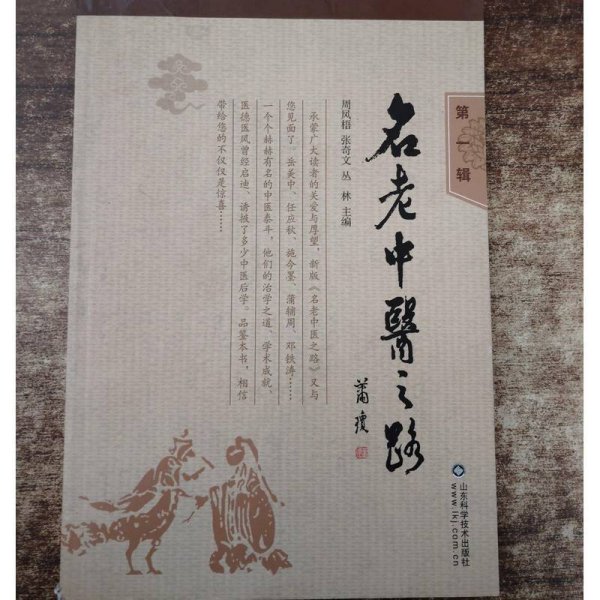 第一辑
名老中醫之路
蒲瓊
周凤梧 张奇文 丛 林 主编
承蒙广大读者的关爱与厚望，新版《名老中医之路》又与
您见面了。岳美中、任应秋、施今墨、蒲辅周、邓铁涛……
一个个赫赫有名的中医泰斗，他们的治学之道、学术成就、
医德医风曾经启迪、诱掖了多少中医后学。品鉴本书，相信
带给您的不仅仅是惊喜……
山东科学技术出版社
www.lkj.com.cn